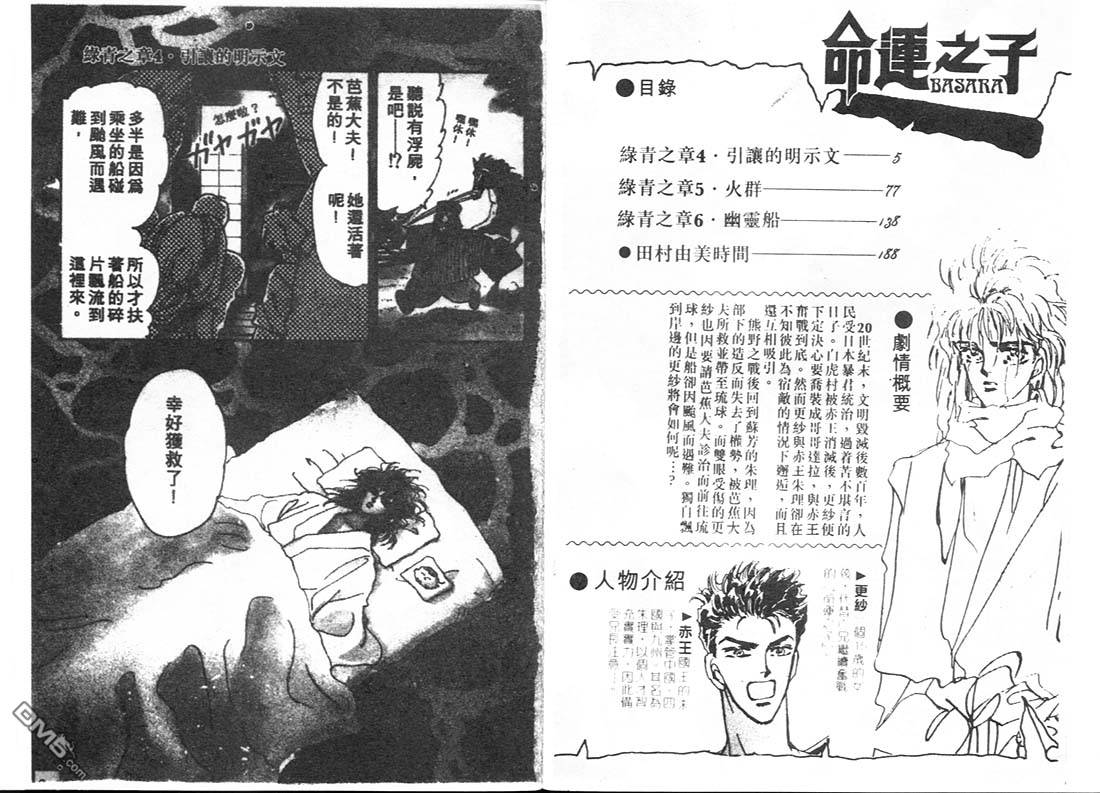 命運之子
BASARA
●目錄
綠青之章4・引讓的明示文——5
綠青之章5・火群——77
綠青之章6・幽靈船——138
●田村由美時間——188
●劇情概要
20世紀末，文明毀滅後數百年，人
民受日本暴君統治，過着苦不堪言的
日子。白虎村被赤王消滅後，更紗便
下定決心要喬裝成哥哥達拉，與赤王
奮戰到底。然而更紗與赤王朱理卻在
不知彼此為宿敵的情況下邂逅，而且
還互相吸引。
熊野之戰後回到蘇芳的朱理，因為
部下的造反而失去了權勢，被芭蕉大
夫所救並帶至琉球。而雙眼受傷的更
紗也因要請芭蕉大夫診治而前往琉
球，但是船卻因颱風而遇難。獨自飄
到岸邊的更紗將會如何呢…？
●人物介紹
▶更紗
▶赤王
國王的
國與九州。其名為
朱理，以個人才智
綠青之章4・引讓的明示文
嘿休！
嘿休！
聽説有浮屍，
是吧——!?
芭蕉大夫！
不是的！
她還活著
呢！
怎麼啦？
ガヤガヤ
多半是因爲
乘坐的船碰
到颱風而遇
難，
所以才扶
著船的碎
片飄流到
這裡來。
幸好獲救了！
DM5.com